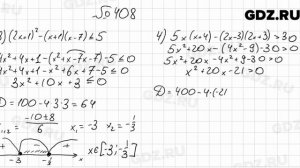 GDZ.RU
№ 408
3) (2x+1)² - (x+1)(x-7) ≤ 5
4x²+4x+1-(x²+x-7x-7)-5≤0
4x²+4x+1-x²+6x+7-5≤0
3x²+10x+3≤0
D=100-4·3·3=64
x₁,₂ = (-10±8)/6   x₁=-3   x₂=-1/3
-3   -1/3   x∈[-3;-1/3]
4) 5x(x+4)-(2x-3)(2x+3)>30
5x²+20x-(4x²-9)-30>0
5x²+20x-4x²+9-30>0
x²+20x-21>0
D=400-4·(-21
GDZ.RU